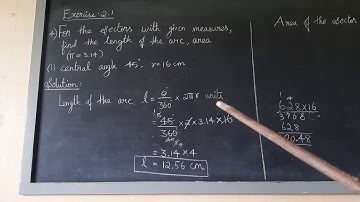 Exercise: 2.1
4) For the sectors with given measures,
find the length of the arc, area
(π = 3.14)
(1) central angle 45°, r = 16 cm
Solution:
Length of the arc, l = θ/360 × 2πr units
= 45/360 × 2 × 3.14 × 16
= 3.14 × 4
l = 12.56 cm
Area of the sector
628 × 16
3768
628